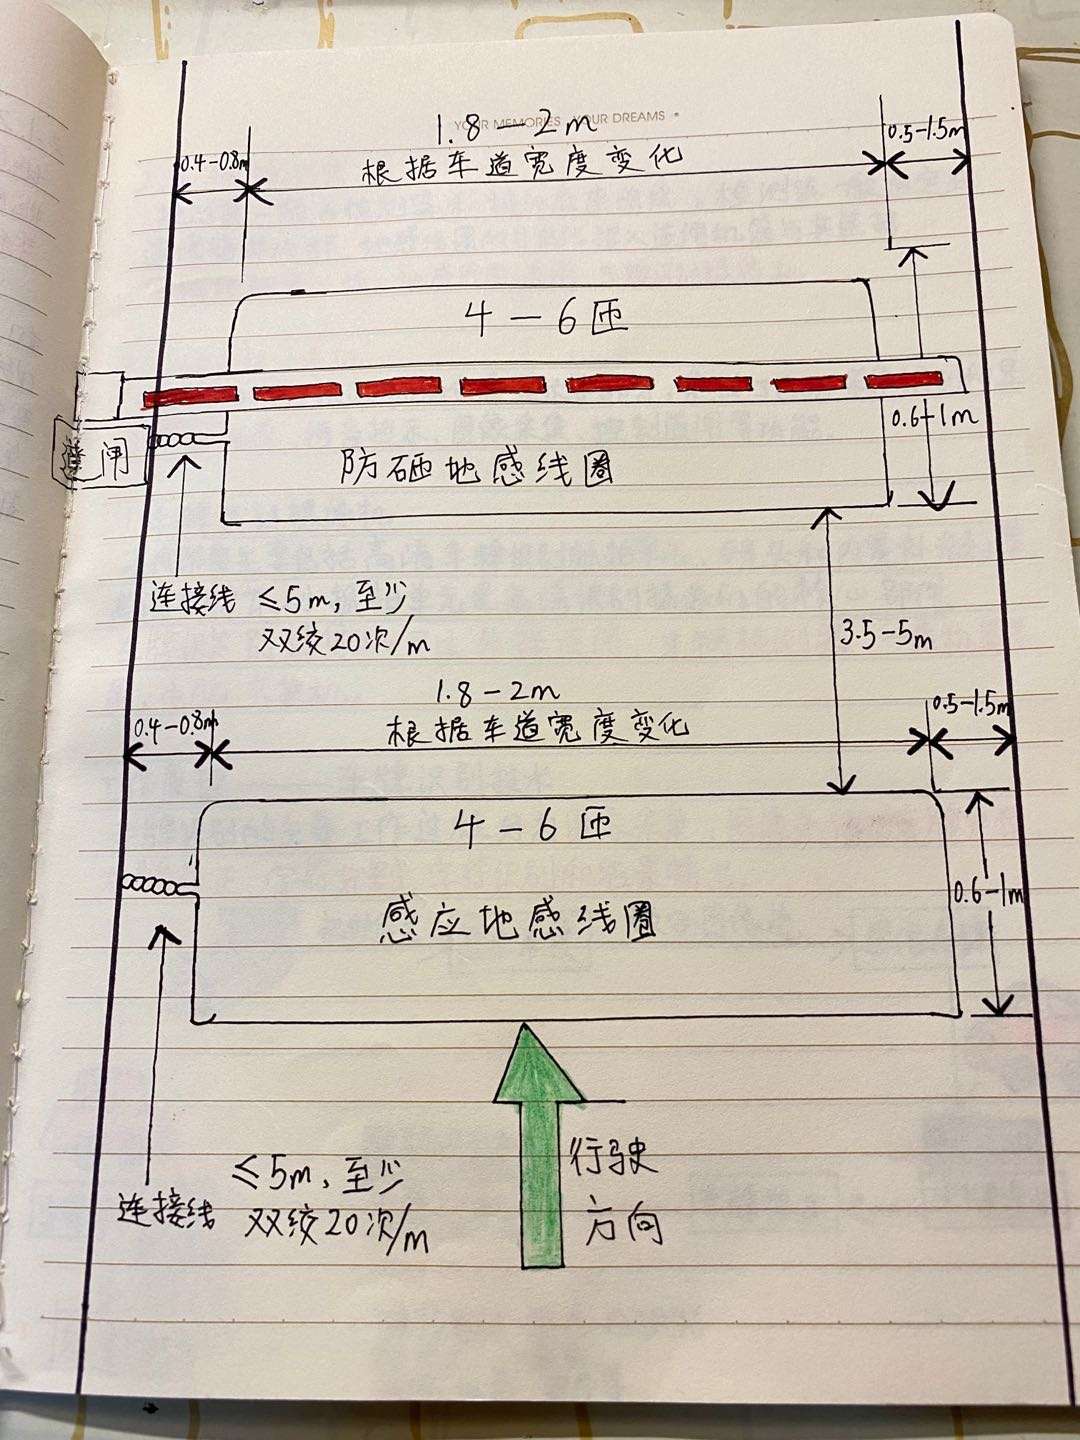 YOUR MEMORIES YOUR DREAMS
1.8-2m
0.4-0.8m
根据车道宽度变化
0.5-1.5m
4-6匝
0.6-1m
道闸
防砸地感线圈
连接线 ≤5m,至少
双绞20次/m
3.5-5m
1.8-2m
0.4-0.8m
根据车道宽度变化
0.5-1.5m
4-6匝
0.6-1m
感应地感线圈
行驶
方向
≤5m,至少
连接线
双绞20次/m